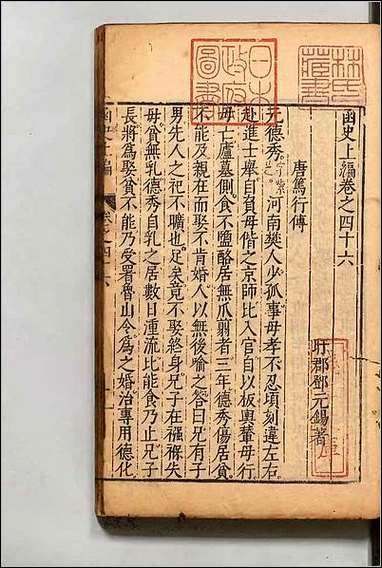 函史上編卷之四十六
盱郡鄧元錫著
唐篤行傳
元德秀字紫芝河南樊人少孤事母孝不忍頃刻違左右
赴進士舉自負母偕之京師比入官自以板輿輦母行
母亡廬墓側食不鹽酪居無爪翦者三年德秀傷居貧
不能及親在而娶不肯婚人以無後喻之答曰兄有子
男先人之祀不曠也足矣竟不娶終身兄子在襁褓失
母貧無乳德秀自乳之居數日湩流比能食乃止兄子
長將為娶貧不能乃受署魯山令為之婚治專用德化
林氏藏書
日本政府圖書